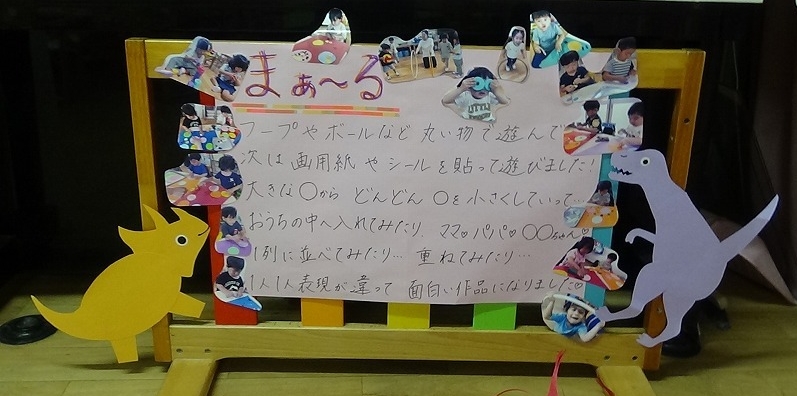 まぁ〜る
フープやボールなど 丸い物で遊んで
次は 画用紙 や シールを貼って遊びました!
大きな〇から どんどん 〇を小さくしていって…
おうちの中へ入れてみたり、ママ♡パパ♡〇〇ちゃん♡
1列に並べてみたり… 重ねてみたり…
1人1人表現が違って 面白い作品になりました♡